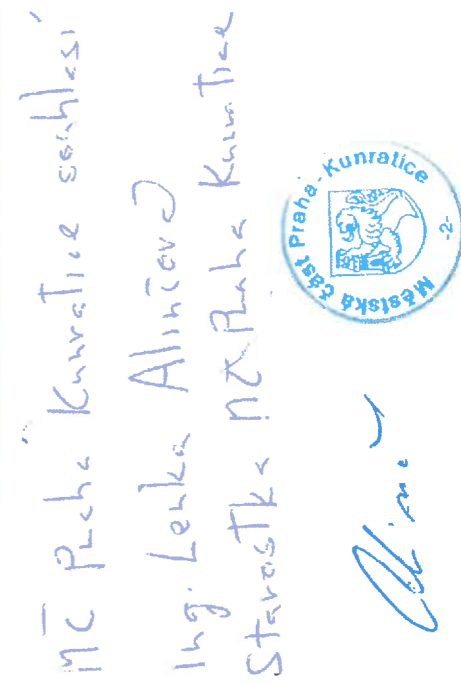 MČ Praha Kunratice souhlasí
Ing. Lenka Alinčová
Starostka MČ Praha Kunratice
Městská část Praha-Kunratice
-2-